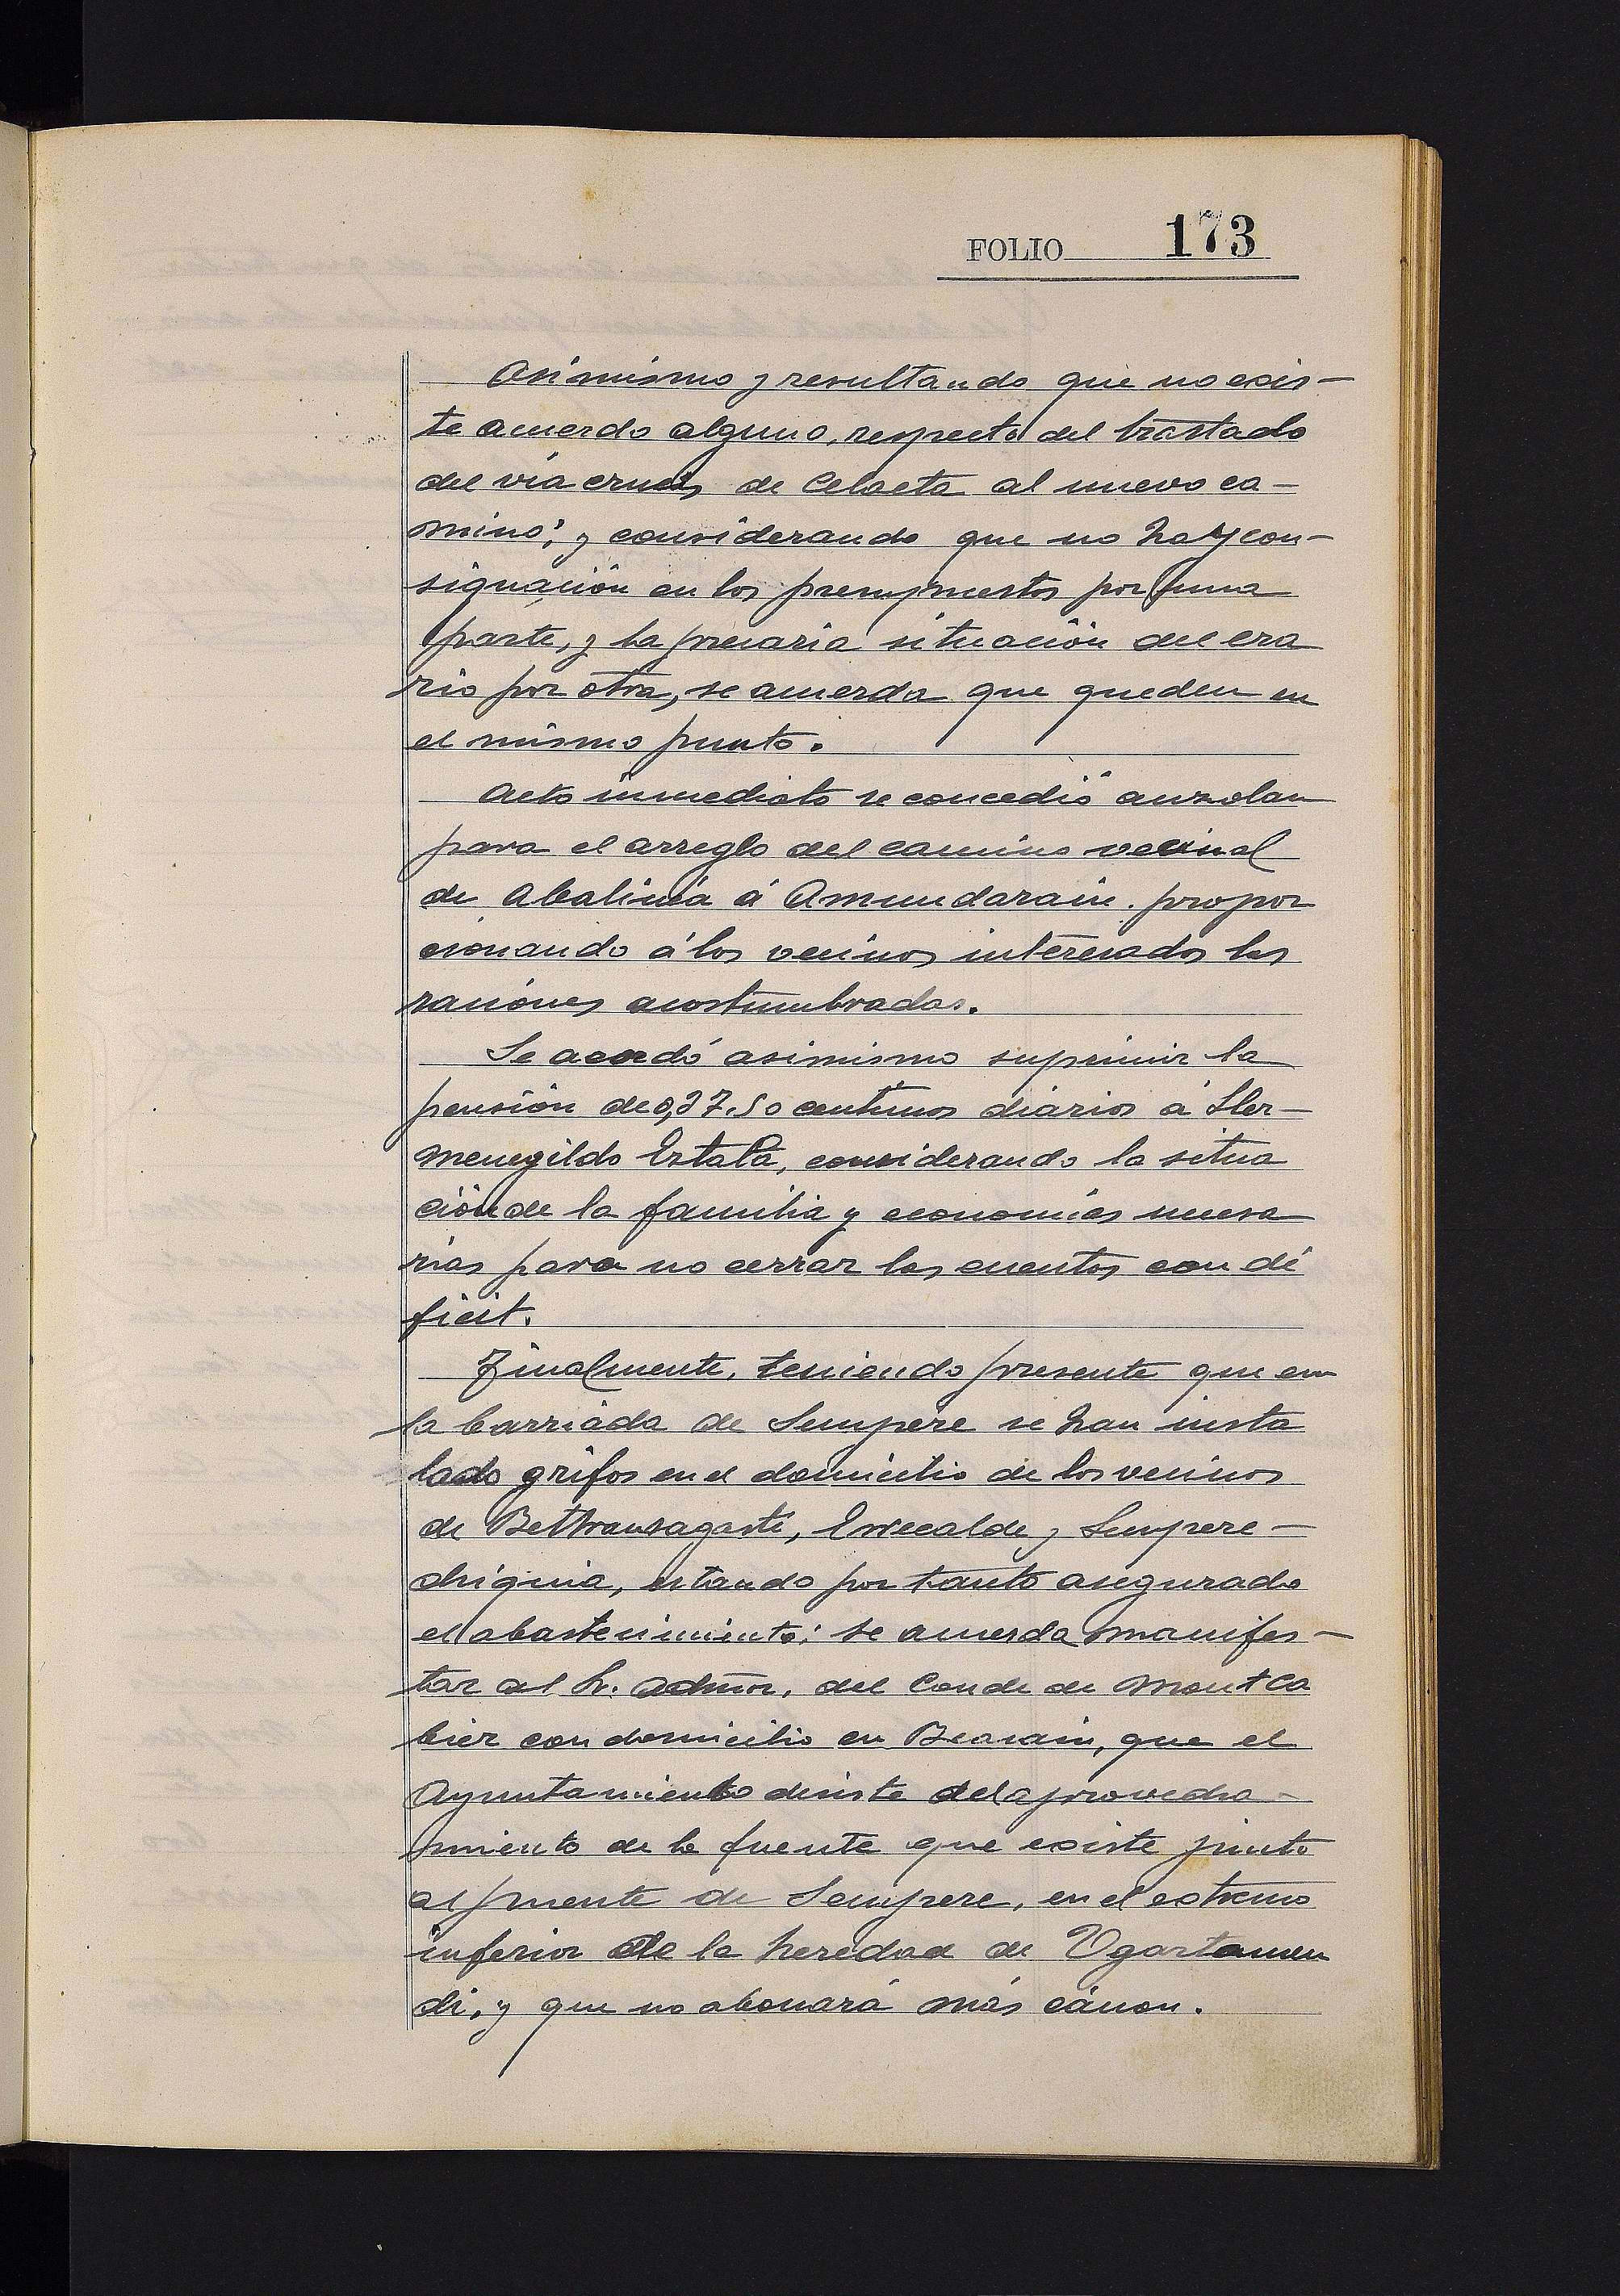 FOLIO 173
Asimismo y resultando que no exis-
te acuerdo alguno, respecto del trastado
del vía crucis de Celaeta al nuevo ca-
mino; y considerando que no hay con-
signación en los presupuestos por una
parte, y la precaria situación del era
rio por otra, se acuerda que queden en
el mismo punto.
Acto inmediato se concedió auzolan
para el arreglo del camino vecinal
de Abalinia á Amundarain. propor
cionando á los vecinos interesados las
raciones acostumbradas.
Se acordó asimismo suprimir la
pensión de 0,37.50 centimos diarios á Her-
menegildo Estala, considerando la situa
ción de la familia y economías necesa
rias para no cerrar las cuentas con dé
ficit.
Finalmente, teniendo presente que en
la barriada de Sempere se han insta
lado grifos en el domicilio de los vecinos
de Beltransagasti, Errecalde y Sempere-
chiquia, estando por tanto asegurado
el abastecimiento; se acuerda manifes-
tar al Sr. Admor. del Conde de Mont Ca
bier con domicilio en Beasain, que el
Ayuntamiento desiste del aprovecha-
miento de la fuente que existe junto
al puente de Sempere, en el extremo
inferior de la heredad de Ugartemen
di, y que no abonará más cánon.